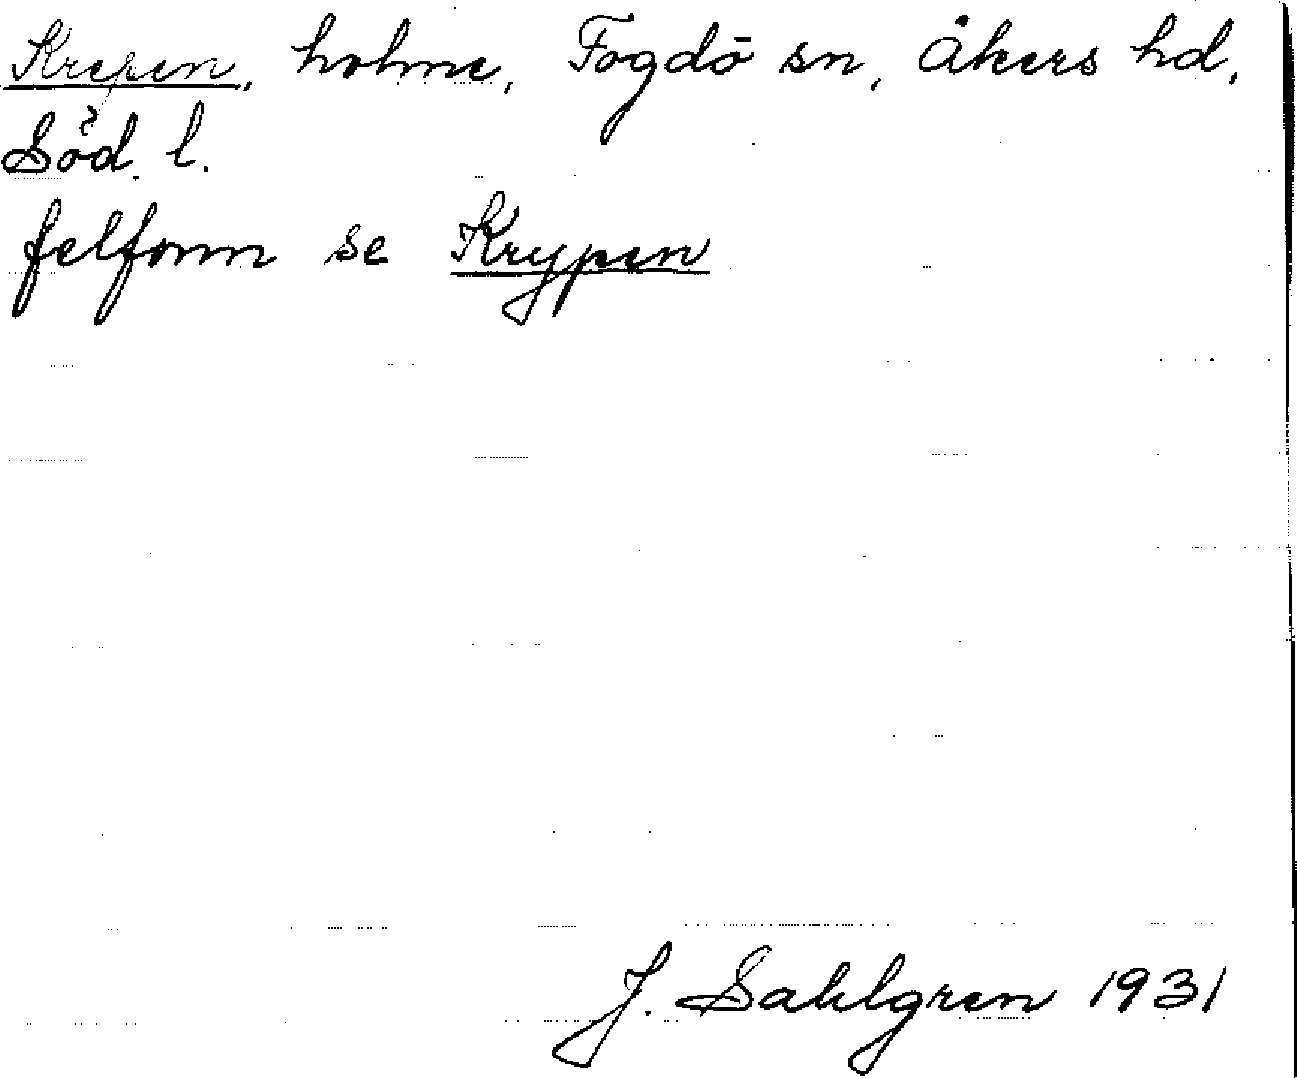 Krepen, holme, Fogdö sn, Åkers hd,
Söd. l.
felform se Krypen
J. Sahlgren 1931